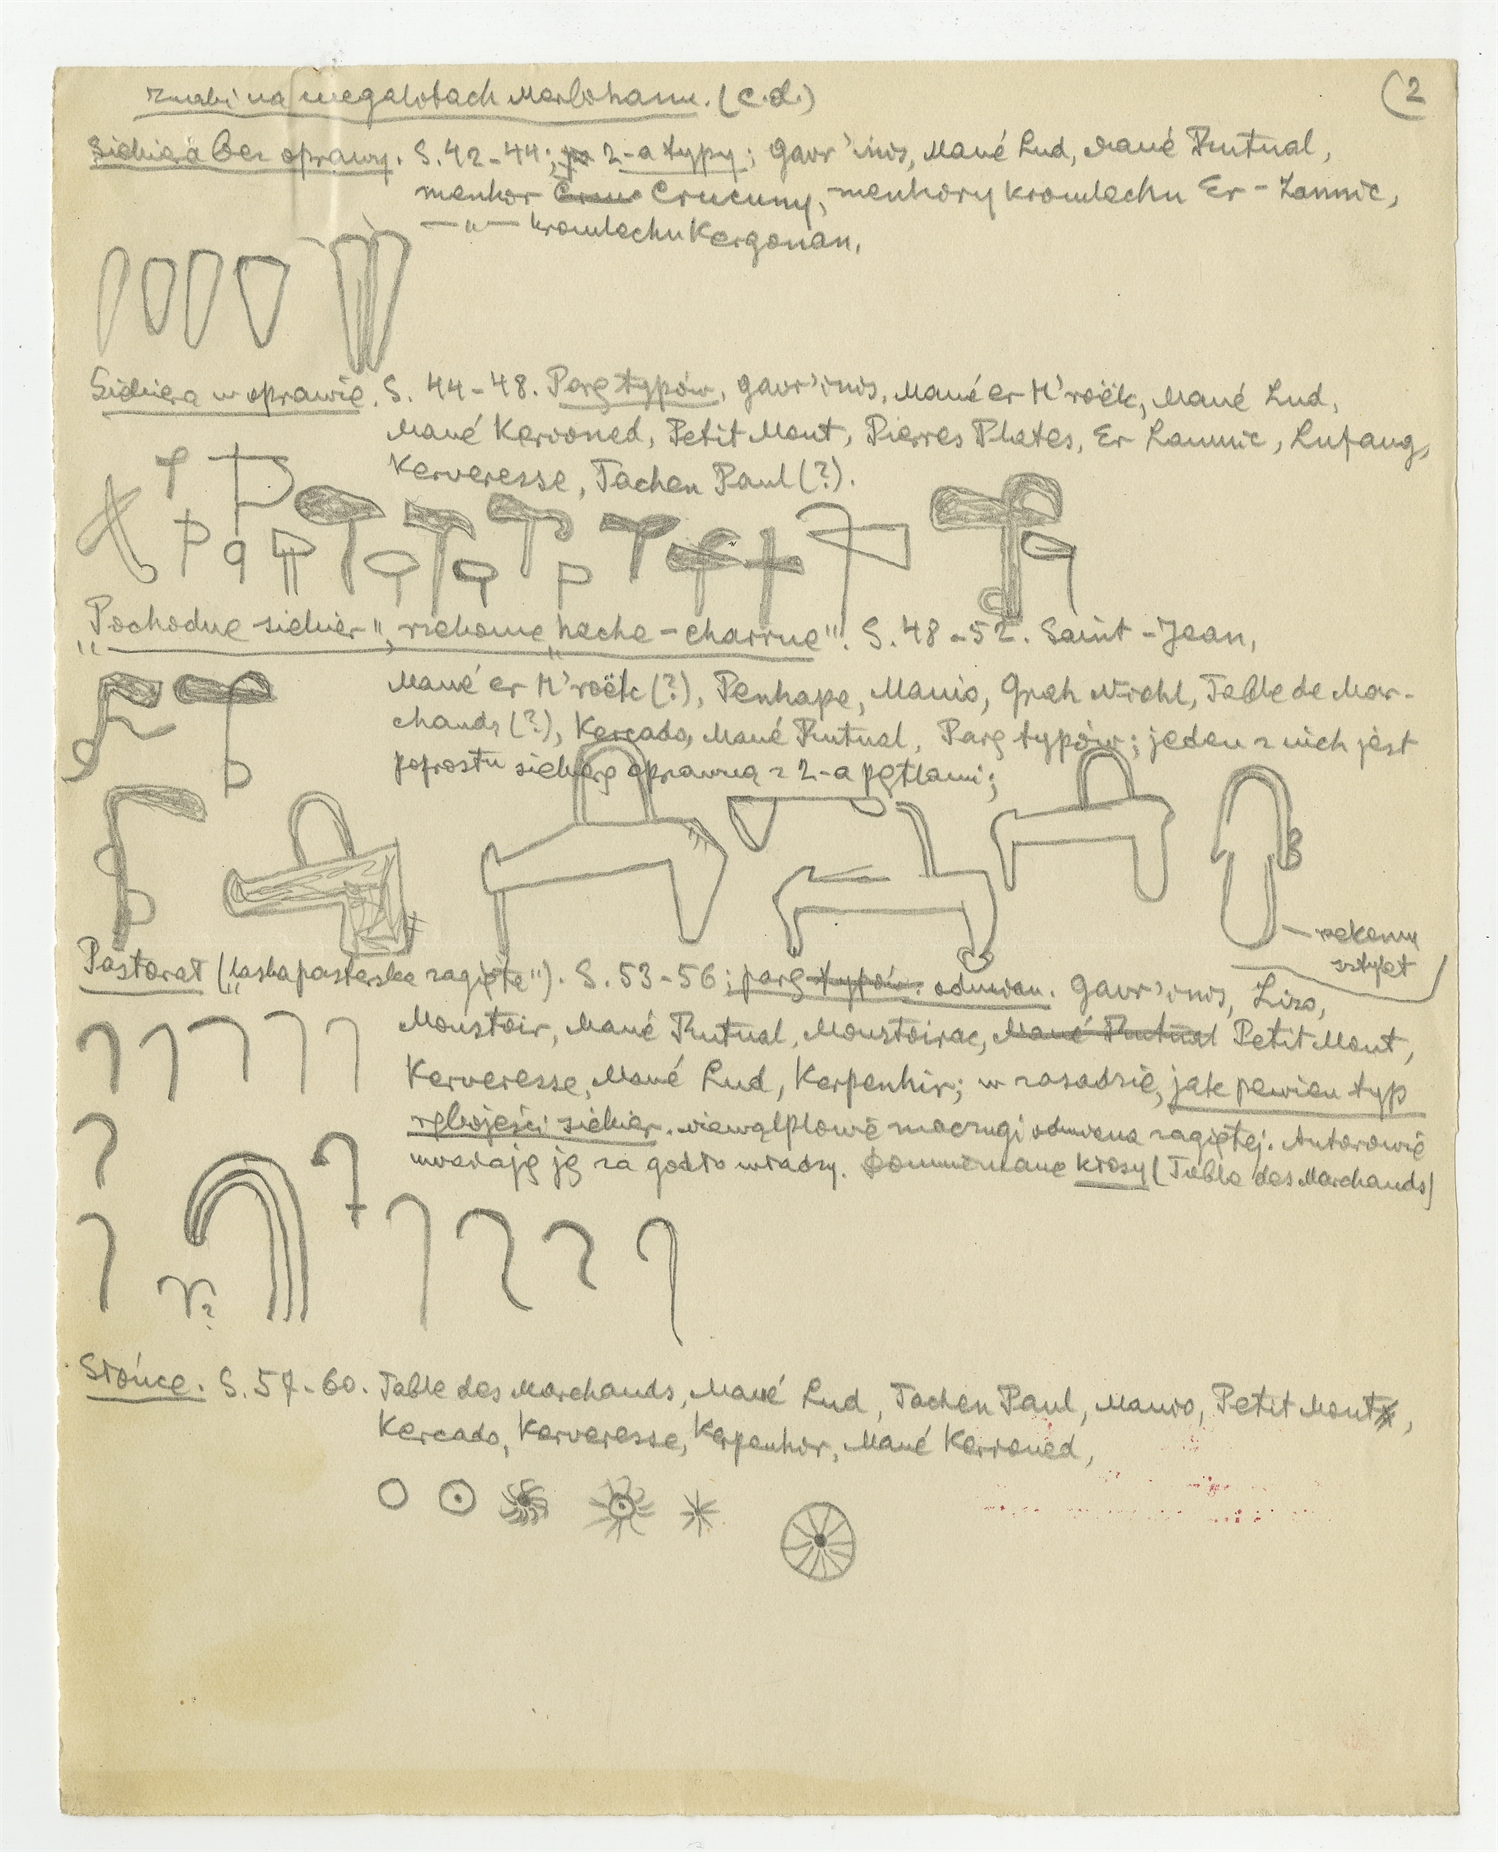 Znaki na megalitach Morbihanu. (c.d.)
(2
Siekiera bez oprawy. S. 42-44; 2-a typy; Gavr'inis, Mané Lud, Mané Rutual,
menhir Crucuny, menhiry kromlechu Er-Lannic,
—„— kromlechu Kergonan,
Siekiera w oprawie. S. 44-48. Parę typów, Gavr'inis, Mané er H'roëk, Mané Lud,
Mané Kerioned, Petit Mont, Pierres Plates, Er Lannic, Lufang,
Kerveresse, Tachen Paul (?).
„Pochodne siekier", rzekome „hache-charrue". S. 48-52. Saint-Jean,
Mané er H'roëk (?), Penhape, Manio, Grah Niohl, Table de Mar-
chands (?), Kercado, Mané Rutual, Parę typów; jeden z nich jest
poprostu siekierą oprawną z 2-a pętlami;
rzekomy
sztylet
Pastorał („laska pasterska zagięta"). S. 53-56; parę typów. odmian. Gavr'inis, Lizo,
Moustoir, Mané Rutual, Moustoirac, Mané Rutual Petit Mont,
Kerveresse, Mané Lud, Kerpenhir; w zasadzie, jak pewien typ
rękojeści siekier. niewątpliwie maczugi odmiana zagiętej. Autorowie
uważają ją za godło władzy. Domniemane kłosy (Table des Marchands)
?
Słońce. S. 57-60. Table des Marchands, Mané Lud, Tachen Paul, Manio, Petit Mont,
Kercado, Kerveresse, Kerpenhir, Mané Kerioned,